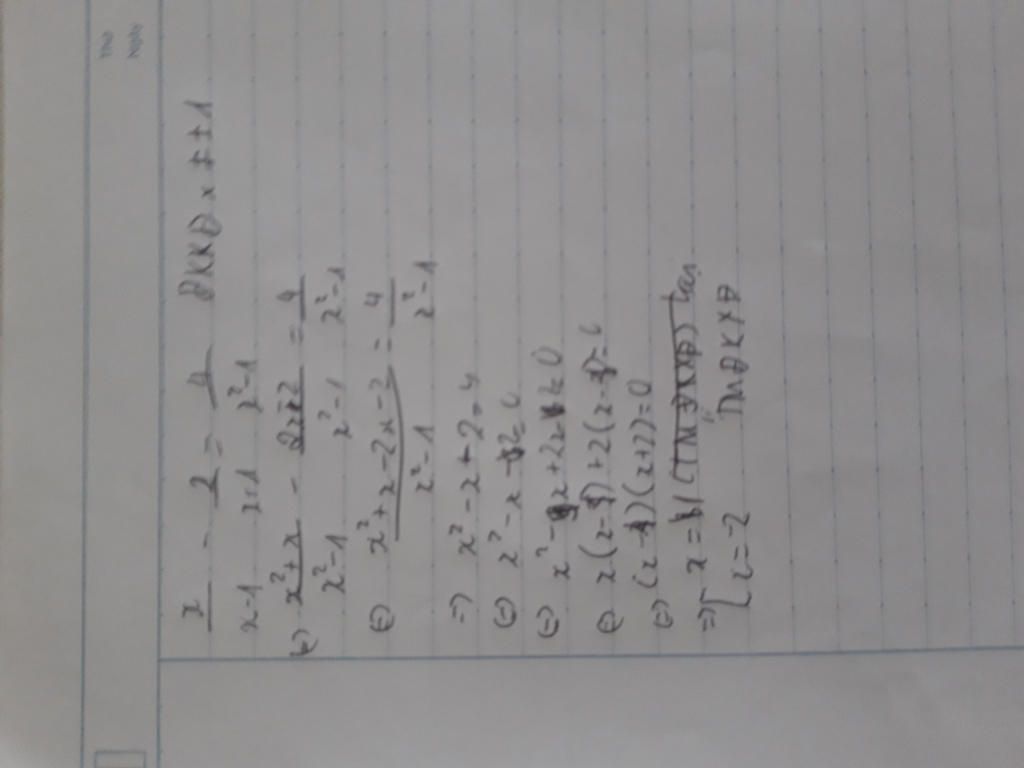 Thứ
Ngày
x/x-1 - 2/x+1 = 4/x²-1 ĐKXĐ x ≠ ±1
(=) x²+x/x²-1 - 2x-2/x²-1 = 4/x²-1
(=) x²+x-2x-2/x²-1 = 4/x²-1
=) x²-x+2=4
(=) x²-x-2=0
(=) x²-x+2x-2=0
(=) x(x-1)+2(x-1)=0
(=) (x-1)(x+2)=0
=) [ x=1 (TMĐKXĐ) loại
x=-2 TMĐKXĐ